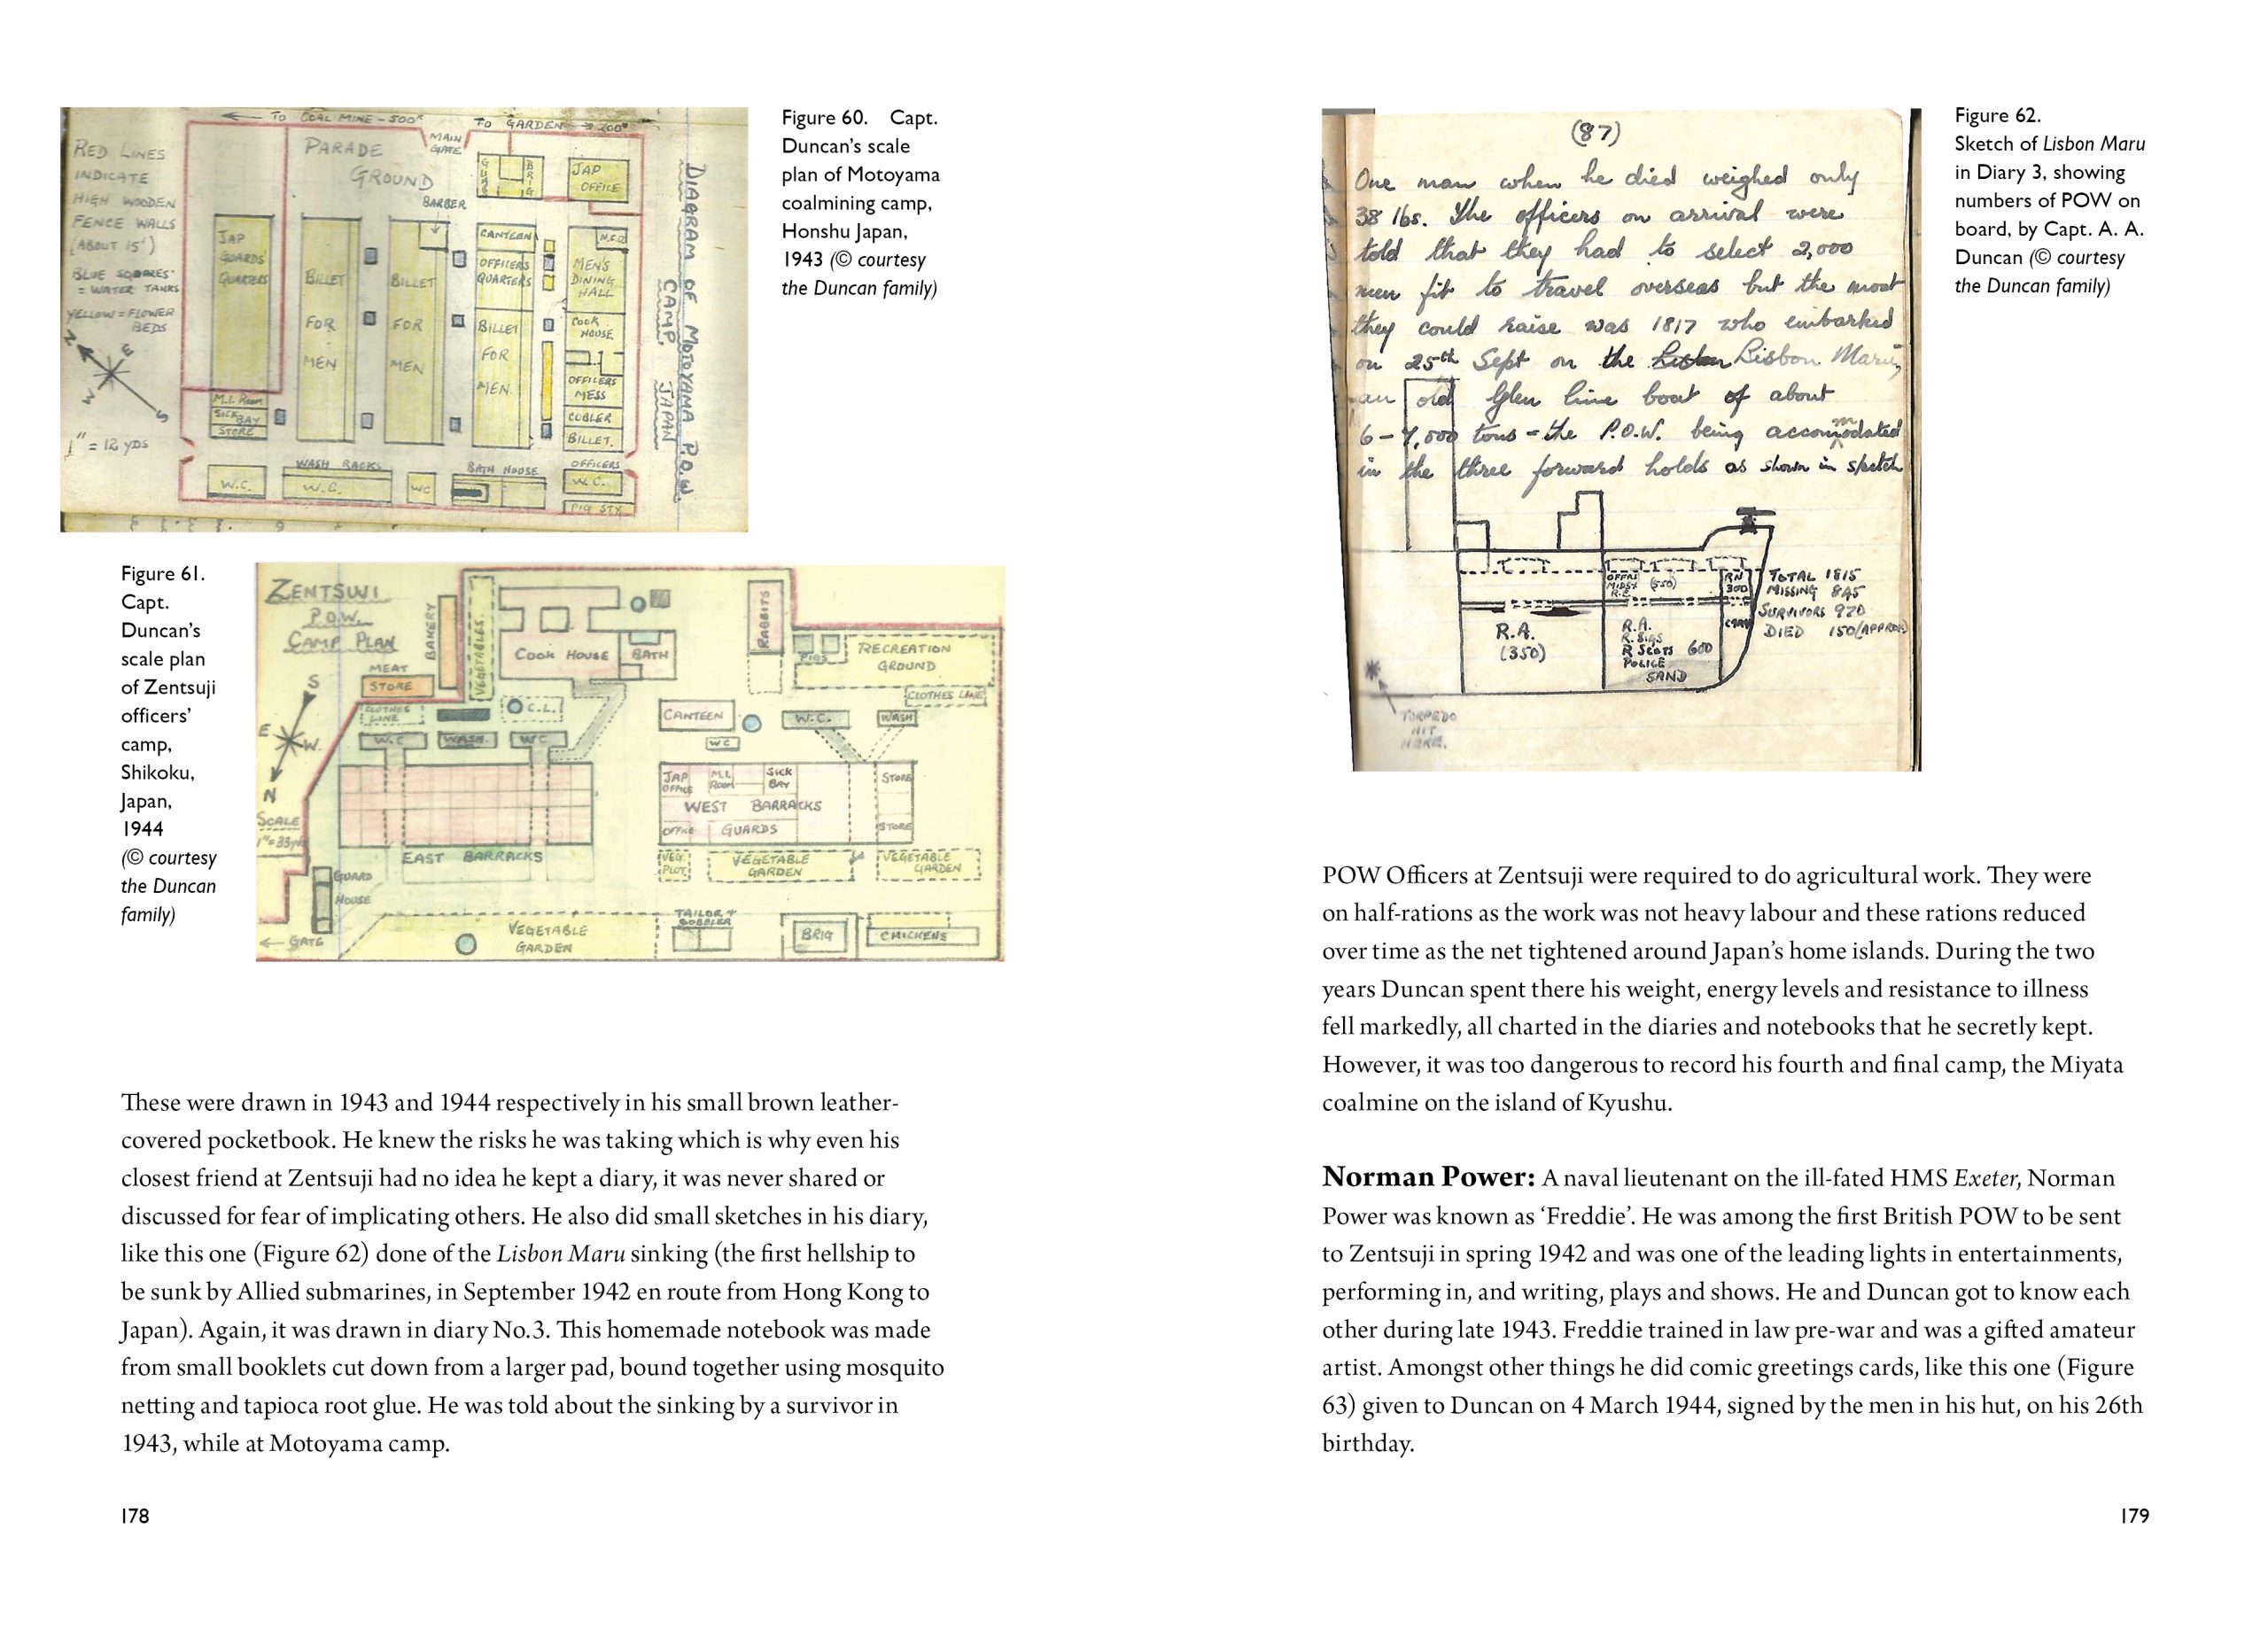 ← TO COAL MINE - 500x
TO GARDEN → 200x
RED LINES
INDICATE
HIGH WOODEN
FENCE WALLS
(ABOUT 15')
BLUE SQUARES
= WATER TANKS
YELLOW = FLOWER
BEDS
N
E
W
S
1" = 12 YDS
PARADE
GROUND
MAIN
GATE
BARBER
GUARD
BRIG
JAP
OFFICE
JAP
GUARDS'
QUARTERS
BILLET
FOR
MEN
BILLET
FOR
MEN
CANTEEN
OFFICERS
QUARTERS
BILLET
FOR
MEN
MEN'S
DINING
HALL
COOK
HOUSE
OFFICERS
MESS
COBLER
BILLET.
M.I. ROOM
SICK
BAY
STORE
WASH RACKS
W.C.
W.C.
WC
BATH HOUSE
OFFICERS
W.C.
PIG STY
DIAGRAM OF MOTOYAMA P.O.W.
CAMP. JAPAN
Figure 60. Capt.
Duncan's scale
plan of Motoyama
coalmining camp,
Honshu Japan,
1943 (© courtesy
the Duncan family)
Figure 61.
Capt.
Duncan's
scale plan
of Zentsuji
officers'
camp,
Shikoku,
Japan,
1944
(© courtesy
the Duncan
family)
ZENTSUJI
P.O.W.
CAMP PLAN
BAKERY
VEGETABLES
MEAT
STORE
COOK HOUSE
BATH
RABBITS
PIGS
RECREATION
GROUND
CLOTHES LINE
S
E
W.
N
SCALE
1"=33yds
CLOTHES
LINE
C.L.
W.C
WASH.
WC
CANTEEN
WC
W.C.
WASH
JAP
OFFICE
M.I.
ROOM
SICK
BAY
STORE
WEST BARRACKS
OFFICE
GUARDS
STORE
EAST BARRACKS
VEG.
PLOT.
VEGETABLE
GARDEN
VEGETABLE
GARDEN
GUARD
HOUSE
← GATE
VEGETABLE
GARDEN
TAILOR +
COBBLER
BRIG
CHICKENS
These were drawn in 1943 and 1944 respectively in his small brown leather-
covered pocketbook. He knew the risks he was taking which is why even his
closest friend at Zentsuji had no idea he kept a diary, it was never shared or
discussed for fear of implicating others. He also did small sketches in his diary,
like this one (Figure 62) done of the Lisbon Maru sinking (the first hellship to
be sunk by Allied submarines, in September 1942 en route from Hong Kong to
Japan). Again, it was drawn in diary No.3. This homemade notebook was made
from small booklets cut down from a larger pad, bound together using mosquito
netting and tapioca root glue. He was told about the sinking by a survivor in
1943, while at Motoyama camp.
178
(87)
One man when he died weighed only
38 lbs. The officers on arrival were
told that they had to select 2,000
men fit to travel overseas but the most
they could raise was 1817 who embarked
on 25th Sept on the Lisbon Lisbon Maru,
an old Glen line boat of about
6-7,000 tons - the P.O.W. being accommodated
in the three forward holds as shown in sketch
OFFRS
MIDDX
R.E.
(550)
RN
300
R.A.
(350)
R.A.
R. SIGS
R SCOTS 600
POLICE
SAND
TOTAL 1815
MISSING 845
SURVIVORS 970
DIED 150 (APPROX)
TORPEDO
HIT
HERE.
Figure 62.
Sketch of Lisbon Maru
in Diary 3, showing
numbers of POW on
board, by Capt. A. A.
Duncan (© courtesy
the Duncan family)
POW Officers at Zentsuji were required to do agricultural work. They were
on half-rations as the work was not heavy labour and these rations reduced
over time as the net tightened around Japan's home islands. During the two
years Duncan spent there his weight, energy levels and resistance to illness
fell markedly, all charted in the diaries and notebooks that he secretly kept.
However, it was too dangerous to record his fourth and final camp, the Miyata
coalmine on the island of Kyushu.
Norman Power: A naval lieutenant on the ill-fated HMS Exeter, Norman
Power was known as 'Freddie'. He was among the first British POW to be sent
to Zentsuji in spring 1942 and was one of the leading lights in entertainments,
performing in, and writing, plays and shows. He and Duncan got to know each
other during late 1943. Freddie trained in law pre-war and was a gifted amateur
artist. Amongst other things he did comic greetings cards, like this one (Figure
63) given to Duncan on 4 March 1944, signed by the men in his hut, on his 26th
birthday.
179